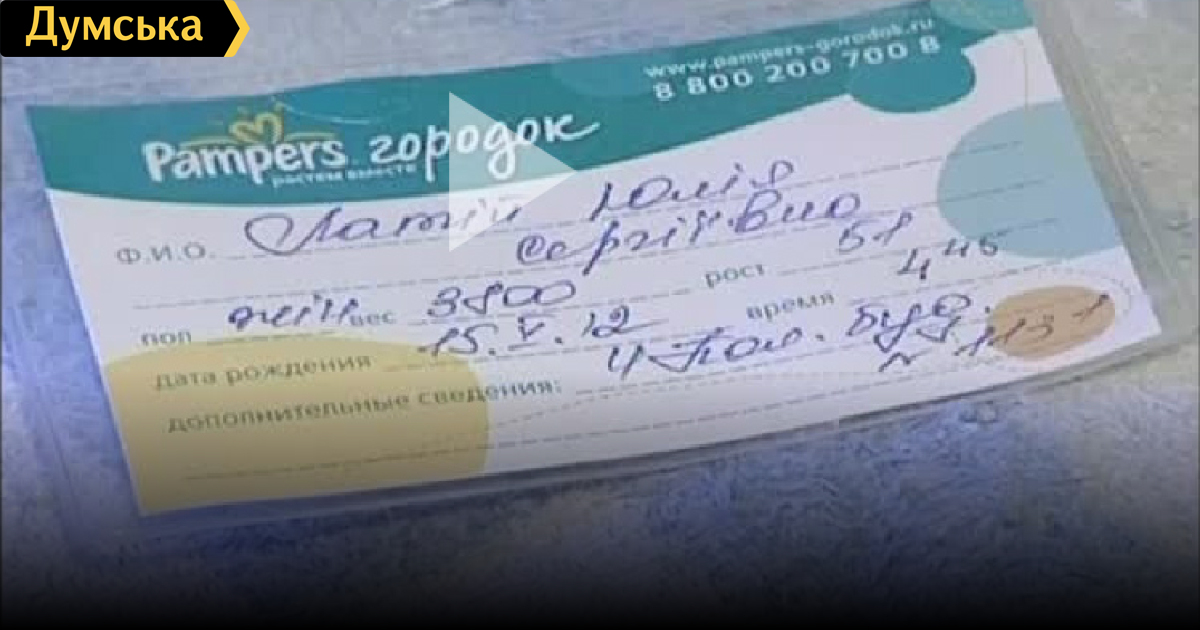 Думська
www.pampers-gorodok.ru
8 800 200 700 8
Pampers городок
растем вместе
Ф.И.О. Латий Юлія
Сергіївна
пол жін вес 3800 рост 51
дата рождения 15.V.12 время 4 45
дополнительные сведения: 4 Пол. буд.
N 113